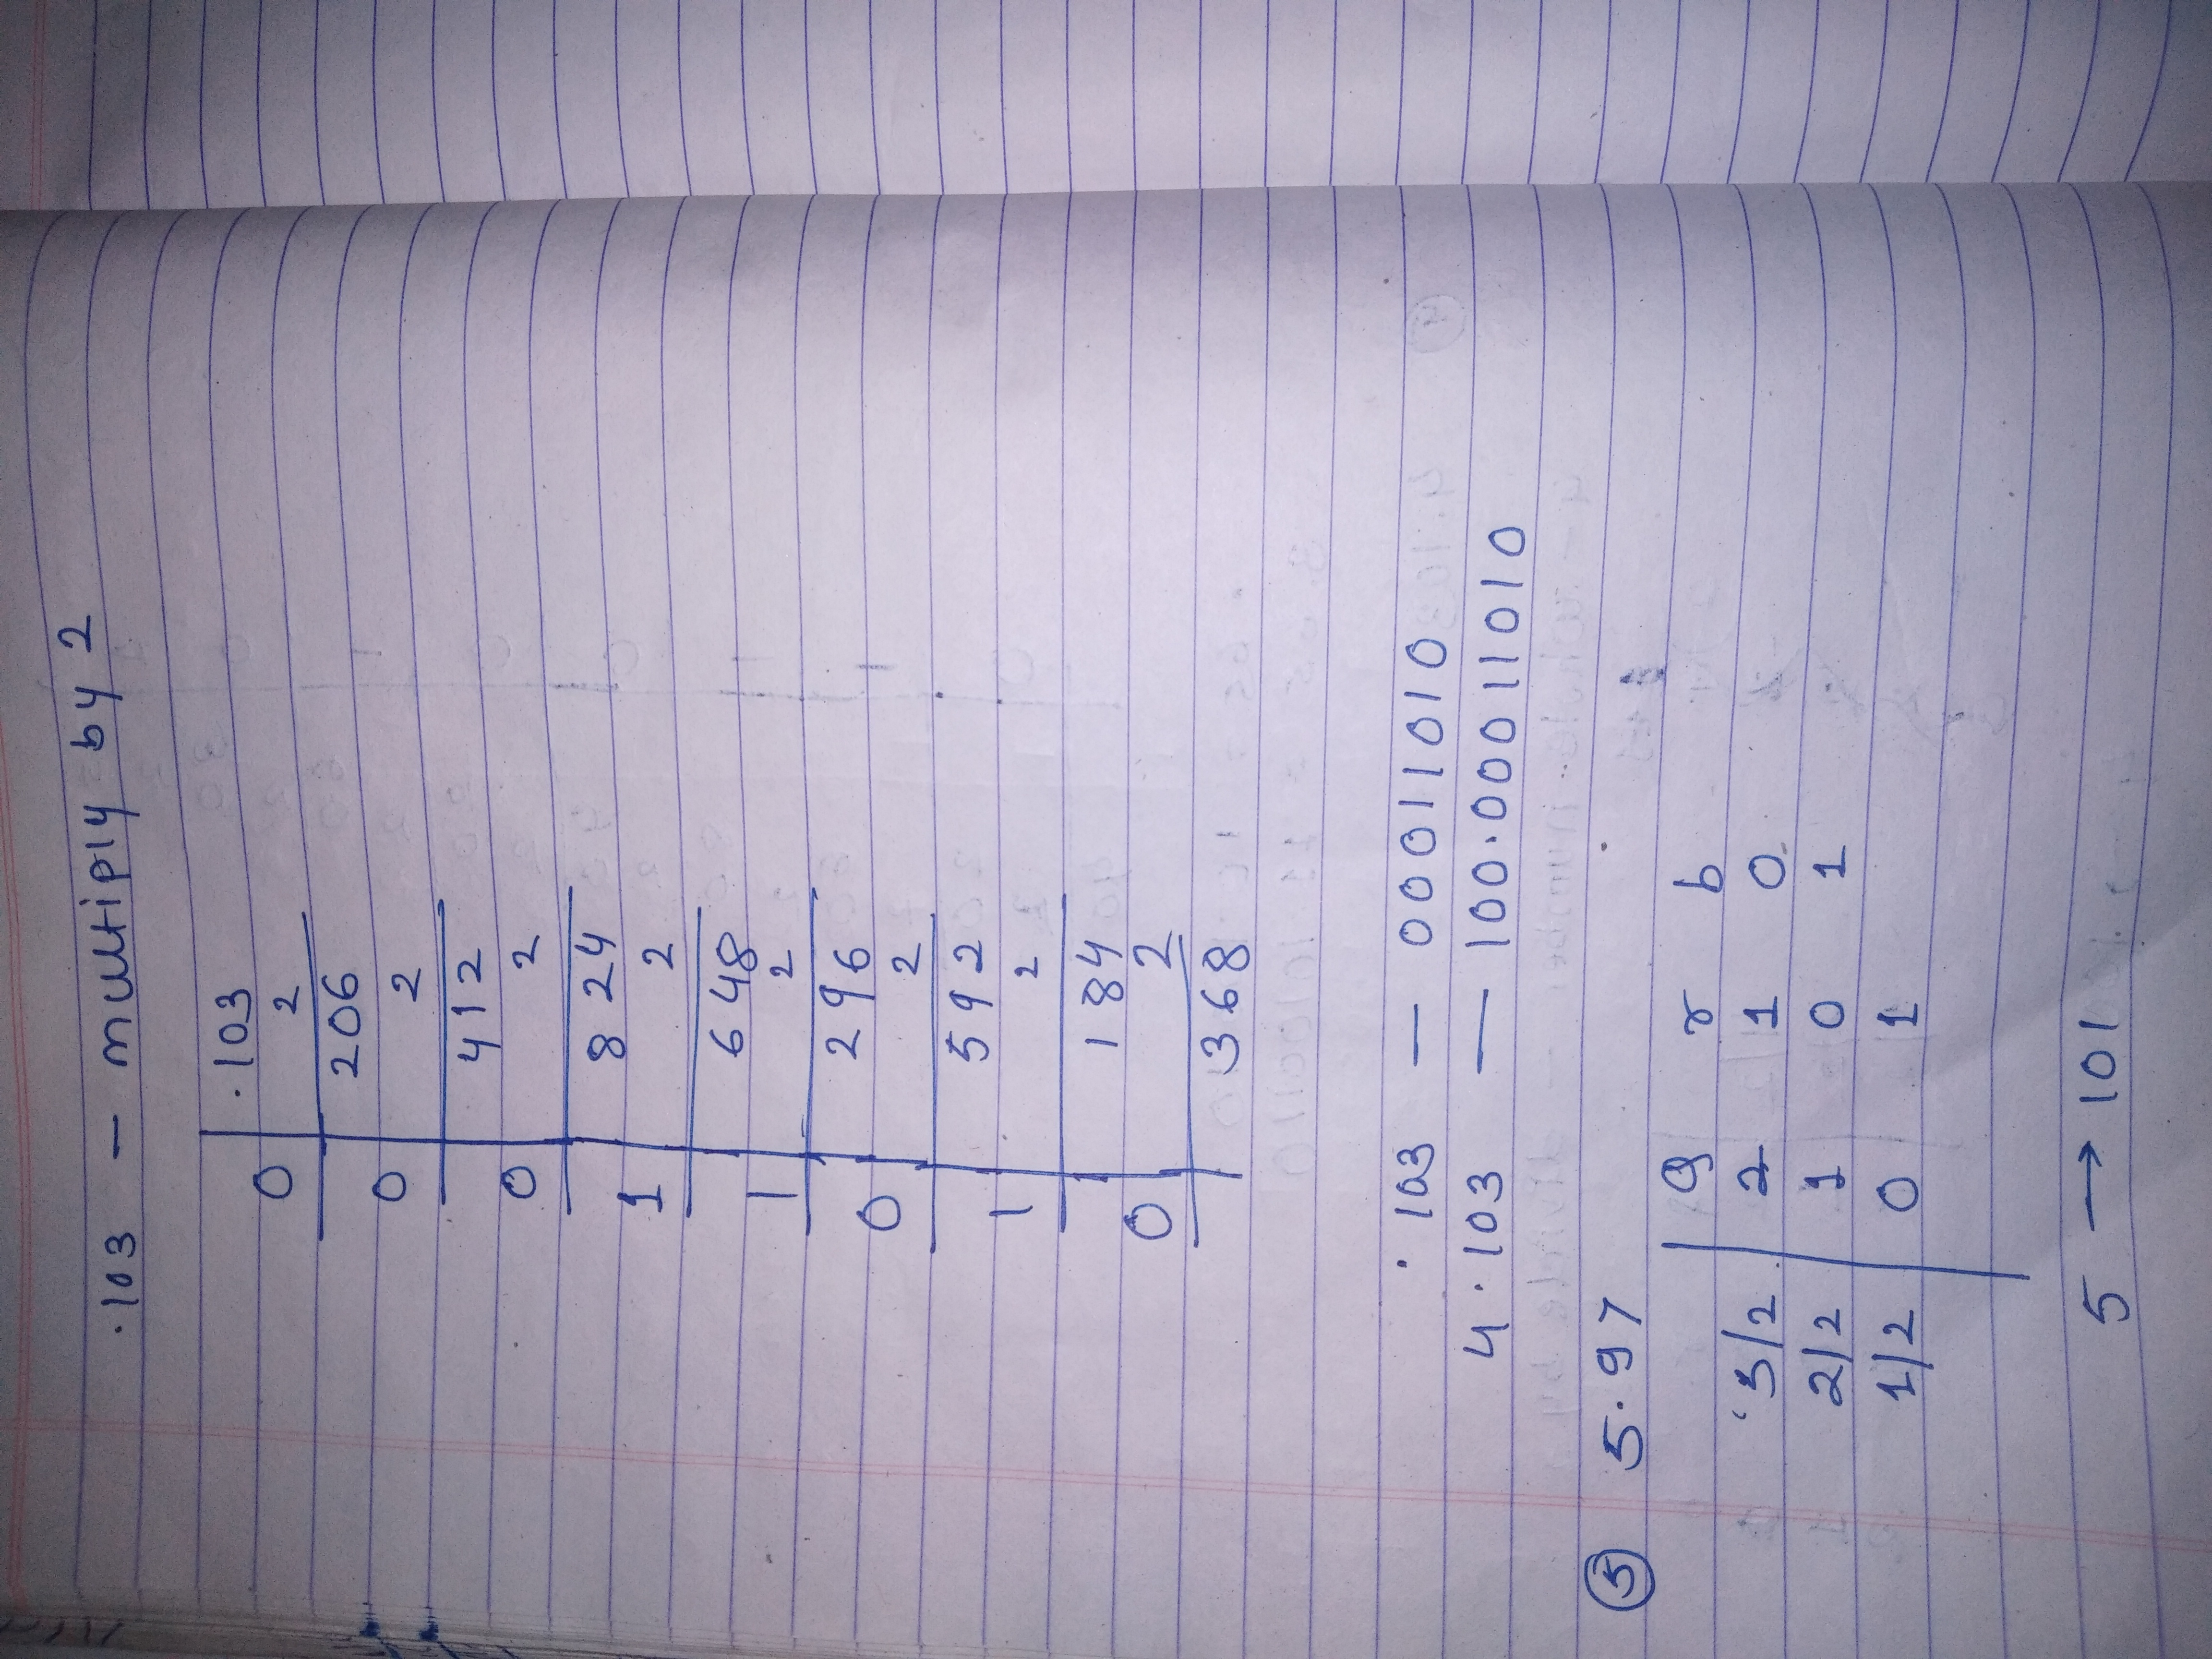 .103 — multiply by 2
.103
0 2
206
0 2
412
0 2
824
1 2
648
1 2
296
0 2
592
1 2
184
0 2
368
.103 — 00011010
4.103 — 100.00011010
5 5.97
q r b
5/2 2 1 0
2/2 1 0 1
1/2 0 1
5 → 101